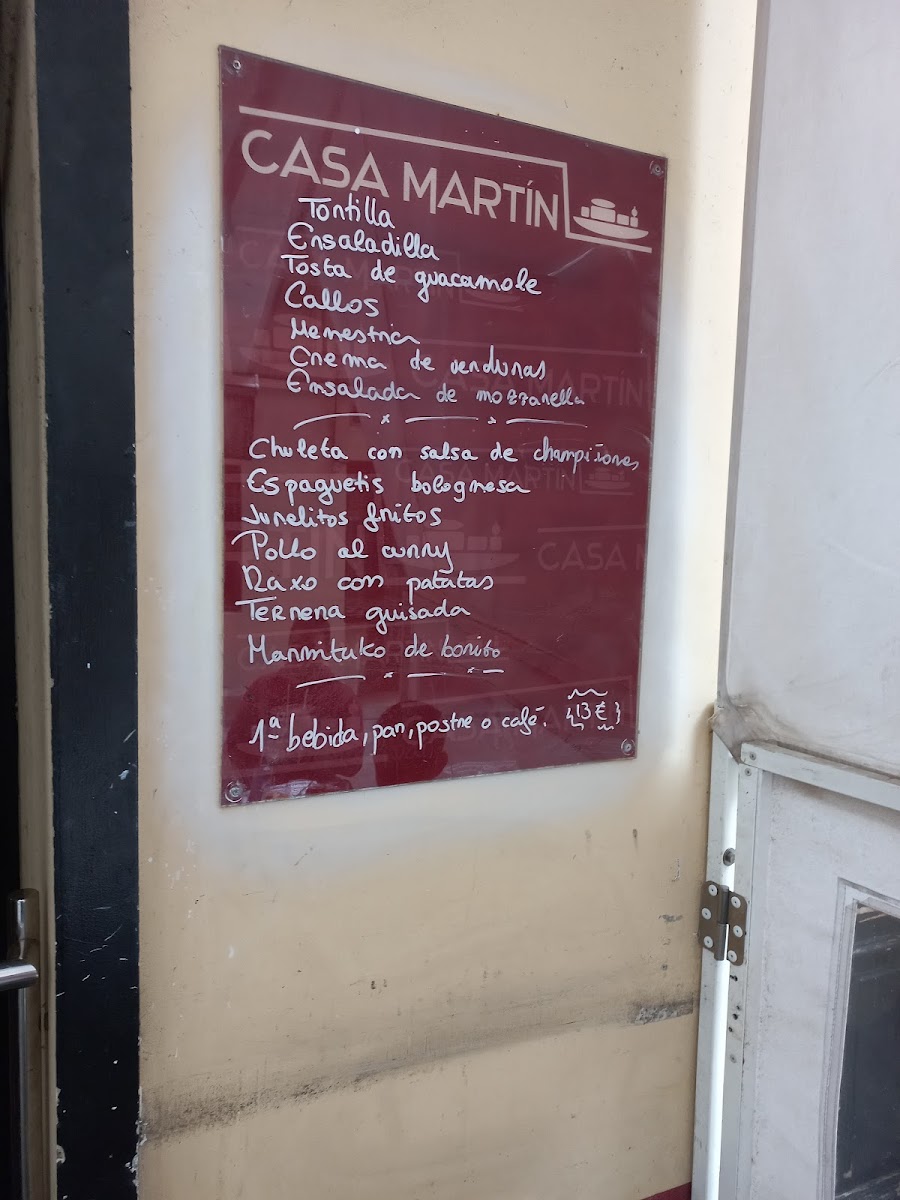 CASA MARTÍN
Tortilla
Ensaladilla
Tosta de guacamole
Callos
Menestra
Crema de verduras
Ensalada de mozzarella
Chuleta con salsa de champiñones
Espaguetis bolognesa
Jurelitos fritos
Pollo al curry
Raxo con patatas
Ternera guisada
Marmitako de bonito
1ª bebida, pan, postre o café. 13 €